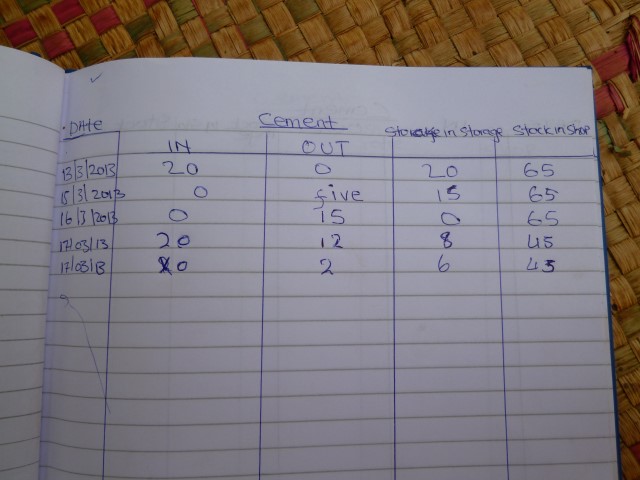 DATE Cement Storage in Storage Stock in Shop
IN OUT
13/3/2013 20 0 20 65
15/3/2013 0 five 15 65
16/3/2013 0 15 0 65
17/03/13 20 12 8 45
17/03/13 0 2 6 45